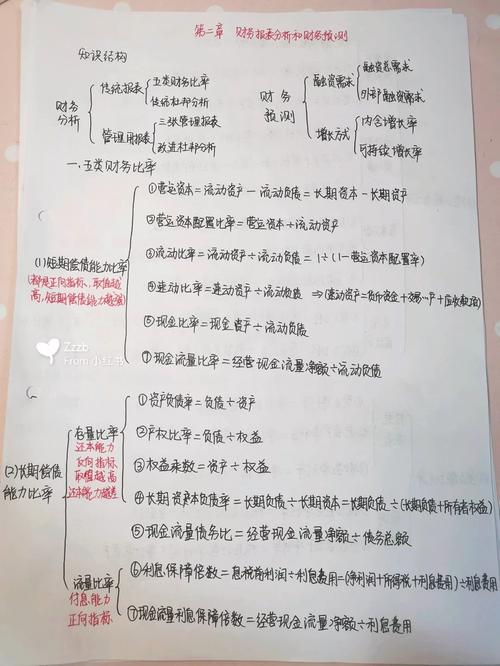 第二章 财务报表分析和财务预测
知识结构
财务分析
传统报表
五类财务比率
传统杜邦分析
管理用报表
三张管理报表
改进杜邦分析
财务预测
融资需求
融资总需求
外部融资需求
增长方式
内含增长率
可持续增长率
一.五类财务比率
(1)短期偿债能力比率
(都是正向指标,取值越高,短期偿债能力越强)
①营运资本=流动资产-流动负债=长期资本-长期资产
②营运资本配置比率=营运资本÷流动资产
③流动比率=流动资产÷流动负债=1÷(1-营运资本配置率)
④速动比率=速动资产÷流动负债 ⇒(速动资产=货币资金+交易…产+应收款项)
⑤现金比率=现金资产÷流动负债
⑦现金流量比率=经营现金流量净额÷流动负债
Zzzb
From 小红书
(2)长期偿债能力比率
存量比率
还本能力
反向指标
取值越高
还本能力越差
①资产负债率=负债÷资产
②产权比率=负债÷权益
③权益乘数=资产÷权益
④长期资本负债率=长期负债÷长期资本=长期负债÷(长期负债+所有者权益)
⑤现金流量债务比=经营现金流量净额÷债务总额
流量比率
付息能力
正向指标
⑥利息保障倍数=息税前利润÷利息费用=(净利润+所得税+利息费用)÷利息费用
⑦现金流量利息保障倍数=经营现金流量净额÷利息费用